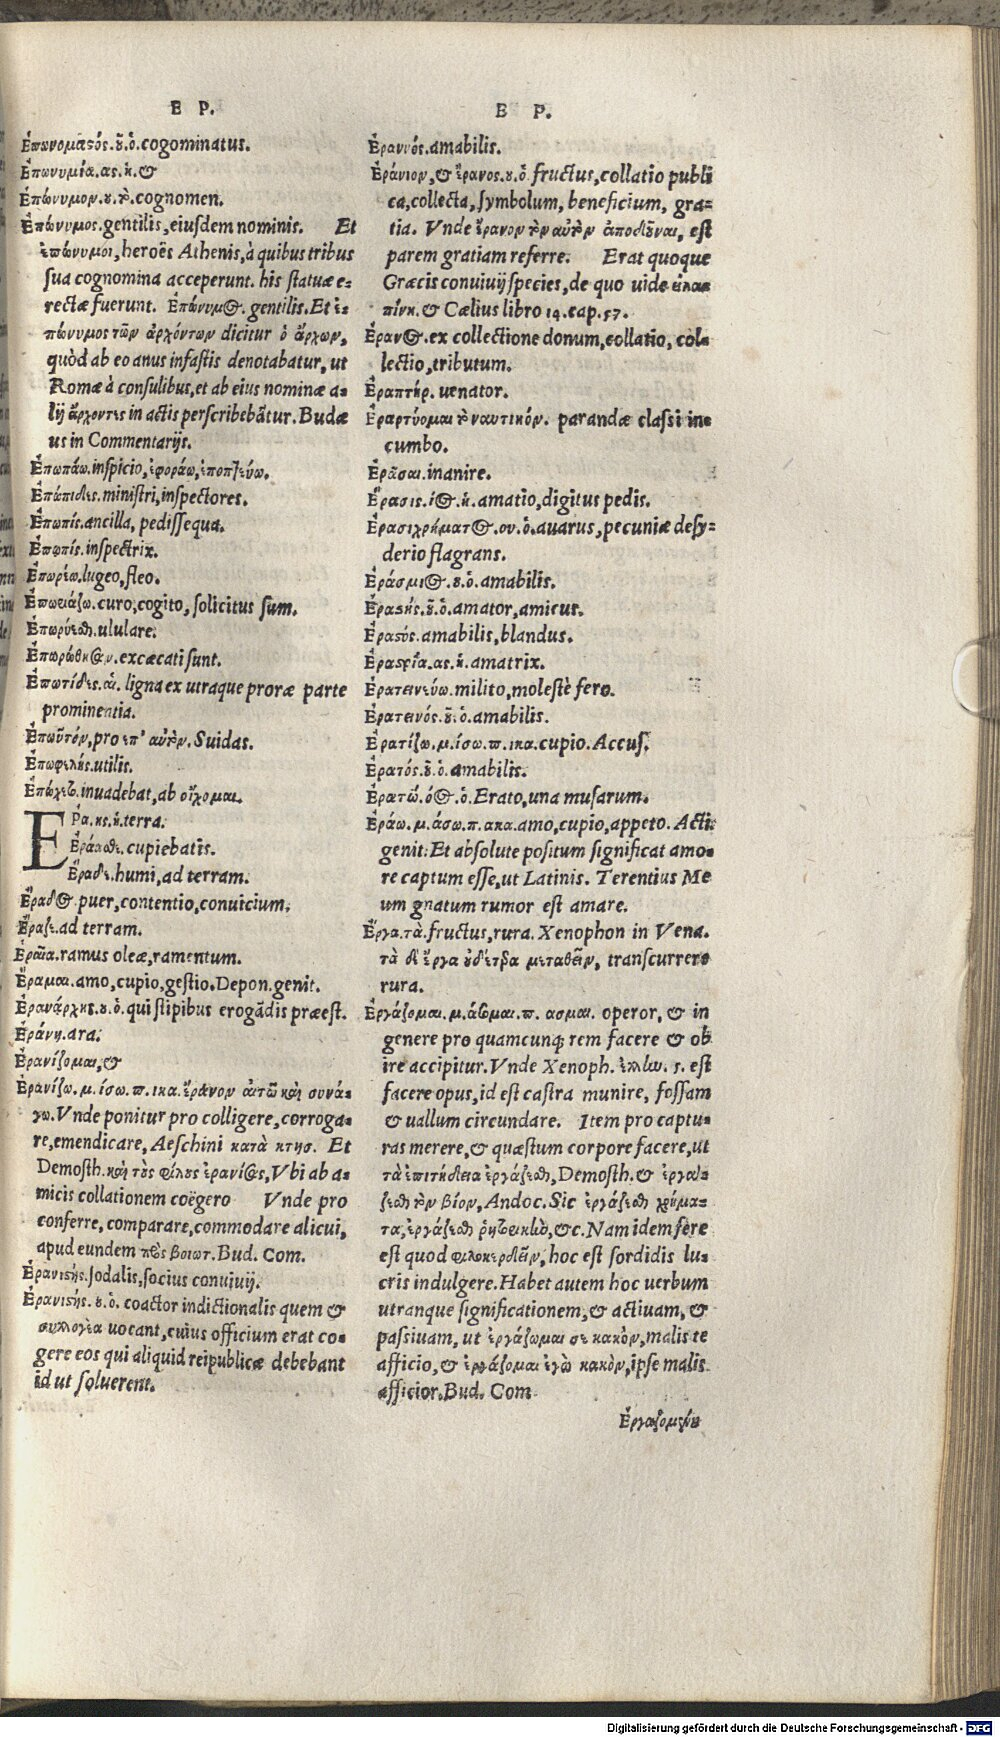 E P.
Ἐπωνομαςός.ȣ̃.ὁ.cogominatus.
Ἐπωνυμία.ας.ἡ.&
Ἐπώνυμον.ȣ.τὸ.cognomen.
Ἐπώνυμος.gentilis,eiusdem nominis. Et
ἐπώνυμοι,heroës Athenis,à quibus tribus
sua cognomina acceperunt. his statuæ e-
rectæ fuerunt. Ἐπώνυμος. gentilis.Et ἐ-
πώνυμος τῶν ἀρχόντων dicitur ὁ ἄρχων,
quòd ab eo anus infastis denotabatur, ut
Romæ à consulibus,et ab eius nominæ a-
lij ἄρχοντες in actis perscribebãtur. Budæ
us in Commentarijs.
Ἐπωπάω.inspicio,ἐφοράω,ἐποπτεύω.
Ἐπώπιδες.ministri,inspectores.
Ἐπωπίς.ancilla, pedissequa.
Ἐπωπίς.inspectrix.
Ἐπωρέω.lugeo,fleo.
curo,cogito, solicitus sum.
Ἐπωρύεσθ.ululare.
excæcati sunt.
Ἐπωτίδες.αἱ. ligna ex utraque proræ parte
prominentia.
Ἐπωϋτόν,pro ἐπ' αὐτόν. Suidas.
Ἐπωφελής.utilis.
Ἐπώχετο.inuadebat,ab οἴχομαι.
ΕΡα.ας.ἡ.terra.
Ἐράασθε.cupiebatis.
Ἔραδε.humi,ad terram.
Ἔραδος puer,contentio,conuicium.
Ἔραζε.ad terram.
ramus oleæ,ramentum.
Ἔραμαι.amo,cupio,gestio.Depon.genit.
Ἐρανάρχης.ȣ.ὁ.qui stipibus erogãdis præest.
Ἐράνη.ara.
Ἐρανίζομαι,&
Ἐρανίζω.μ.ίσω.π.ικα.ἔρανον αἰτῶ καὶ συνά-
γω.Vnde ponitur pro colligere,corroga-
re,emendicare, Aeschini κατὰ κτησ. Et
Demosth.καὶ τȣ̀ς φίλȣς ἐρανίσας,Vbi ab a-
micis collationem coëgero Vnde pro
conferre, comparare,commodare alicui,
apud eundem πρὸς βοιωτ.Bud. Com.
Ἐρανιςής.sodalis,socius conuiuij.
Ἐρανιςής.ȣ.ὁ. coactor indictionalis quem &
συλλογέα uocant,cuius officium erat co-
gere eos qui aliquid reipublicæ debebant
id ut soluerent.
E P.
Ἐραννός.amabilis.
Ἐράνιον,& ἔρανος.ȣ.ὁ. fructus,collatio publi
ca,collecta, symbolum, beneficium, gra-
tia. Vnde ἔρανον τὸν αὐτὸν ἀποδȣ̃ναι, est
parem gratiam referre. Erat quoque
Græcis conuiuij species,de quo uide εἰλα-
πίνη.& Cælius libro 14.cap.57.
Ἔρανος.ex collectione donum,collatio, col-
lectio,tributum.
Ἐραπτήρ. uenator.
Ἐραρτύομαι τὸ ναυτικόν. parandæ classi in-
cumbo.
Ἐρᾶσαι.inanire.
Ἔρασις.ίος.ἡ.amatio,digitus pedis.
Ἐρασιχρήματος.ου.ὁ.auarus,pecuniæ desy-
derio flagrans.
Ἐράσμιος.ȣ.ὁ.amabilis.
Ἐραςής.ȣ̃.ὁ.amator,amicus.
Ἐραςός.amabilis,blandus.
Ἐράςρια.ας.ἡ.amatrix.
Ἐρατεινεύω.milito,molestè fero.
Ἐρατεινός.ȣ̃.ὁ.amabilis.
Ἐρατίζω.μ.ίσω.π.ικα.cupio.Accus.
Ἐρατός.ȣ̃.ὁ.amabilis.
Ἐρατώ.όος.ἡ.Erato,una musarum.
Ἐράω.μ.άσω.π.ακα.amo,cupio,appeto. Acti.
genit.Et absolute positum significat amo-
re captum esse,ut Latinis. Terentius Me
um gnatum rumor est amare.
Ἔργα.τὰ.fructus,rura. Xenophon in Vena.
τὰ δ'ἔργα transcurrere
rura.
Ἐργάζομαι.μ.άσομαι.π. ασμαι. operor, & in
genere pro quamcunq; rem facere & ob
ire accipitur.Vnde Xenoph. est
facere opus,id est castra munire, fossam
& uallum circundare. Item pro captu-
ras merere,& quæstum corpore facere,ut
τὰ ἐπιτήδεια ἐργάζεσθ,Demosth.& ἐργά-
ζεσθ τὸν βίον, Andoc. Sic ἐργάζεσθ χρήμα-
τα,ἐργάζεσθ ῥητορικὴν,&c.Nam idem fere
est quod φιλοκερδεῖν,hoc est sordidis lu-
cris indulgere.Habet autem hoc uerbum
utranque significationem,& actiuam, &
passiuam, ut ἐργάζωμαι σε κακὸν,malis te
afficio,& ἐργάζομαι ἐγὼ κακὸν,ipse malis
afficior.Bud. Com
Digitalisierung gefördert durch die Deutsche Forschungsgemeinschaft - DFG